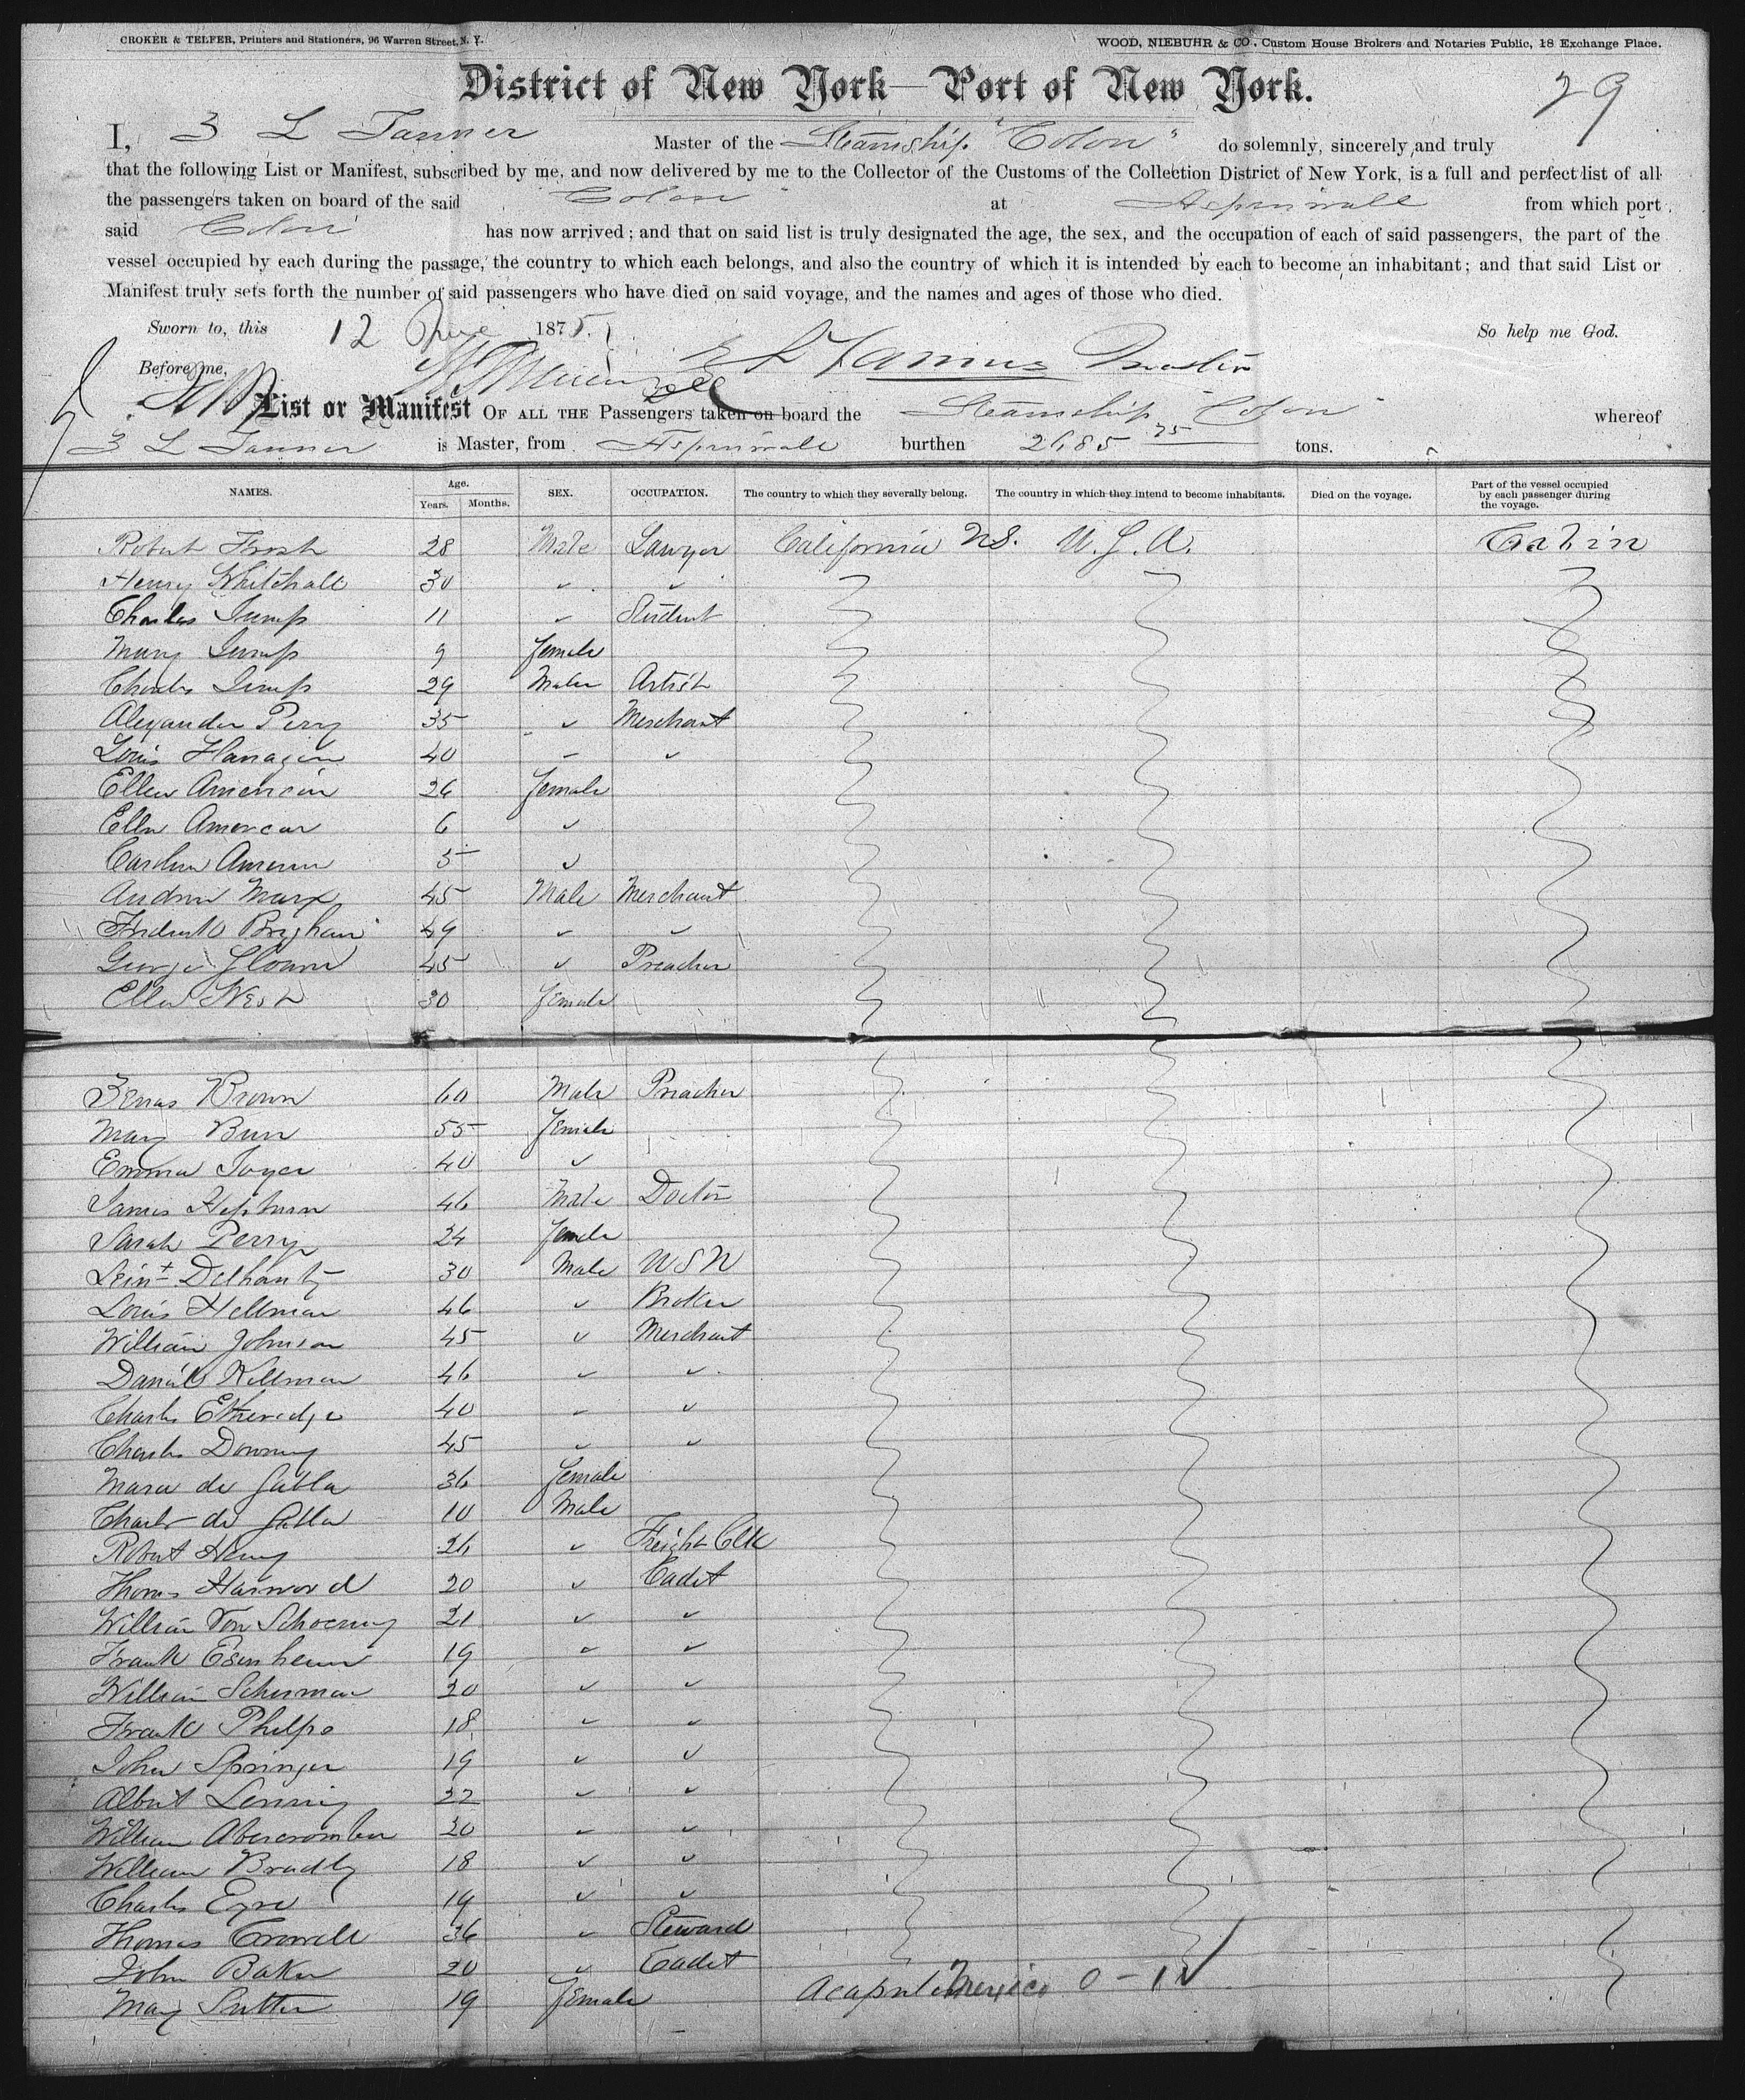 CROKER & TELFER, Printers and Stationers, 96 Warren Street, N. Y. WOOD, NIEBUHR & CO., Custom House Brokers and Notaries Public, 18 Exchange Place.
District of New York—Port of New York.
29
I, Z L Tanner Master of the Steamship "Colon" do solemnly, sincerely and truly
that the following List or Manifest, subscribed by me, and now delivered by me to the Collector of the Customs of the Collection District of New York, is a full and perfect list of all
the passengers taken on board of the said "Colon" at Aspinwall from which port
said Colon has now arrived; and that on said list is truly designated the age, the sex, and the occupation of each of said passengers, the part of the
vessel occupied by each during the passage, the country to which each belongs, and also the country of which it is intended by each to become an inhabitant; and that said List or
Manifest truly sets forth the number of said passengers who have died on said voyage, and the names and ages of those who died.
Sworn to, this 12 1875. So help me God.
Before me, Z L Tanner Master
List or Manifest OF ALL THE Passengers taken on board the Steamship "Colon" whereof
Z L Tanner is Master, from Aspinwall burthen 2685 75 tons.
NAMES. Age. Years. Months. SEX. OCCUPATION. The country to which they severally belong. The country in which they intend to become inhabitants. Died on the voyage. Part of the vessel occupied by each passenger during the voyage.
Robert 28 Male Lawyer California US. U.S.A. Cabin
Henry Whitehall 30 " "
Charles Jump 11 " Student
Mary Jump 9 Female
Charles Jump 29 Male Artist
Alexander Perry 35 " Merchant
Louis Flanagin 40 " "
Ellen American 26 Female
Ellen American 6 "
Caroline 5 "
Andrew Marx 45 Male Merchant
Fredrick Brigham 49 " "
George 45 " Preacher
Ellen West 30 Female
Zenas Brown 60 Male Preacher
Mary 55 Female
Emma Joyce 40 "
James Hepburn 46 Male Doctor
Sarah Perry 24 Female
Leint Delhanty 30 Male U S N
Louis Hellman 46 " Broker
William Johnson 45 " Merchant
Daniel Killman 46 " "
Charles Etheredge 40 " "
Charles Downing 45 " "
Maria de Sabla 36 Female
Charles de Sabla 10 Male
Robert Henry 26 " Freight Clk
Thomas Harwood 20 " Cadet
William Von Schoening 21 " "
Frank 19 " "
William Scherman 20 " "
Frank Phelps 18 " "
John Springer 19 " "
Albert Lenning 22 " "
William Abercrombie 20 " "
William Bradly 18 " "
Charles Eyre 19 " "
Thomas Crowell 36 " Steward
John Baker 20 " Cadet
Mary Sutter 19 Female Acapulco Mexico 0 - 1